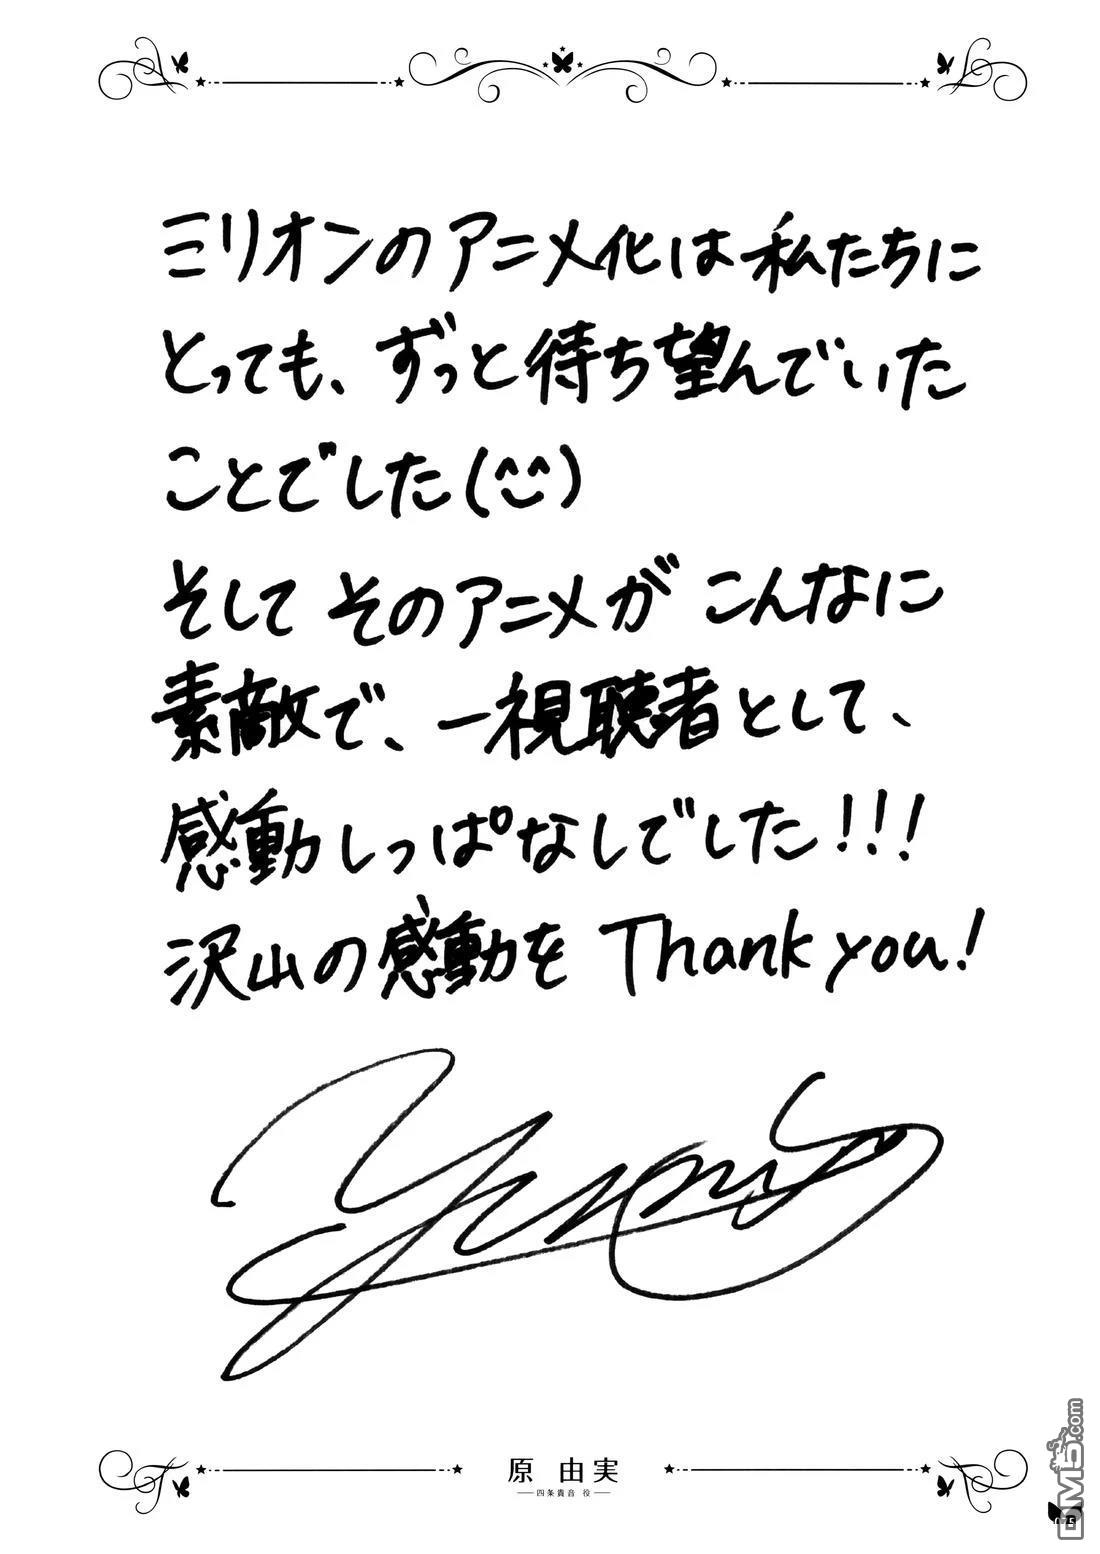 ミリオンのアニメ化は私たちに
とっても、ずっと待ち望んでいた
ことでした(^^)
そしてそのアニメがこんなに
素敵で、一視聴者として、
感動しっぱなしでした!!!
沢山の感動を Thank you!
原 由実
四条貴音 役
DM5.com